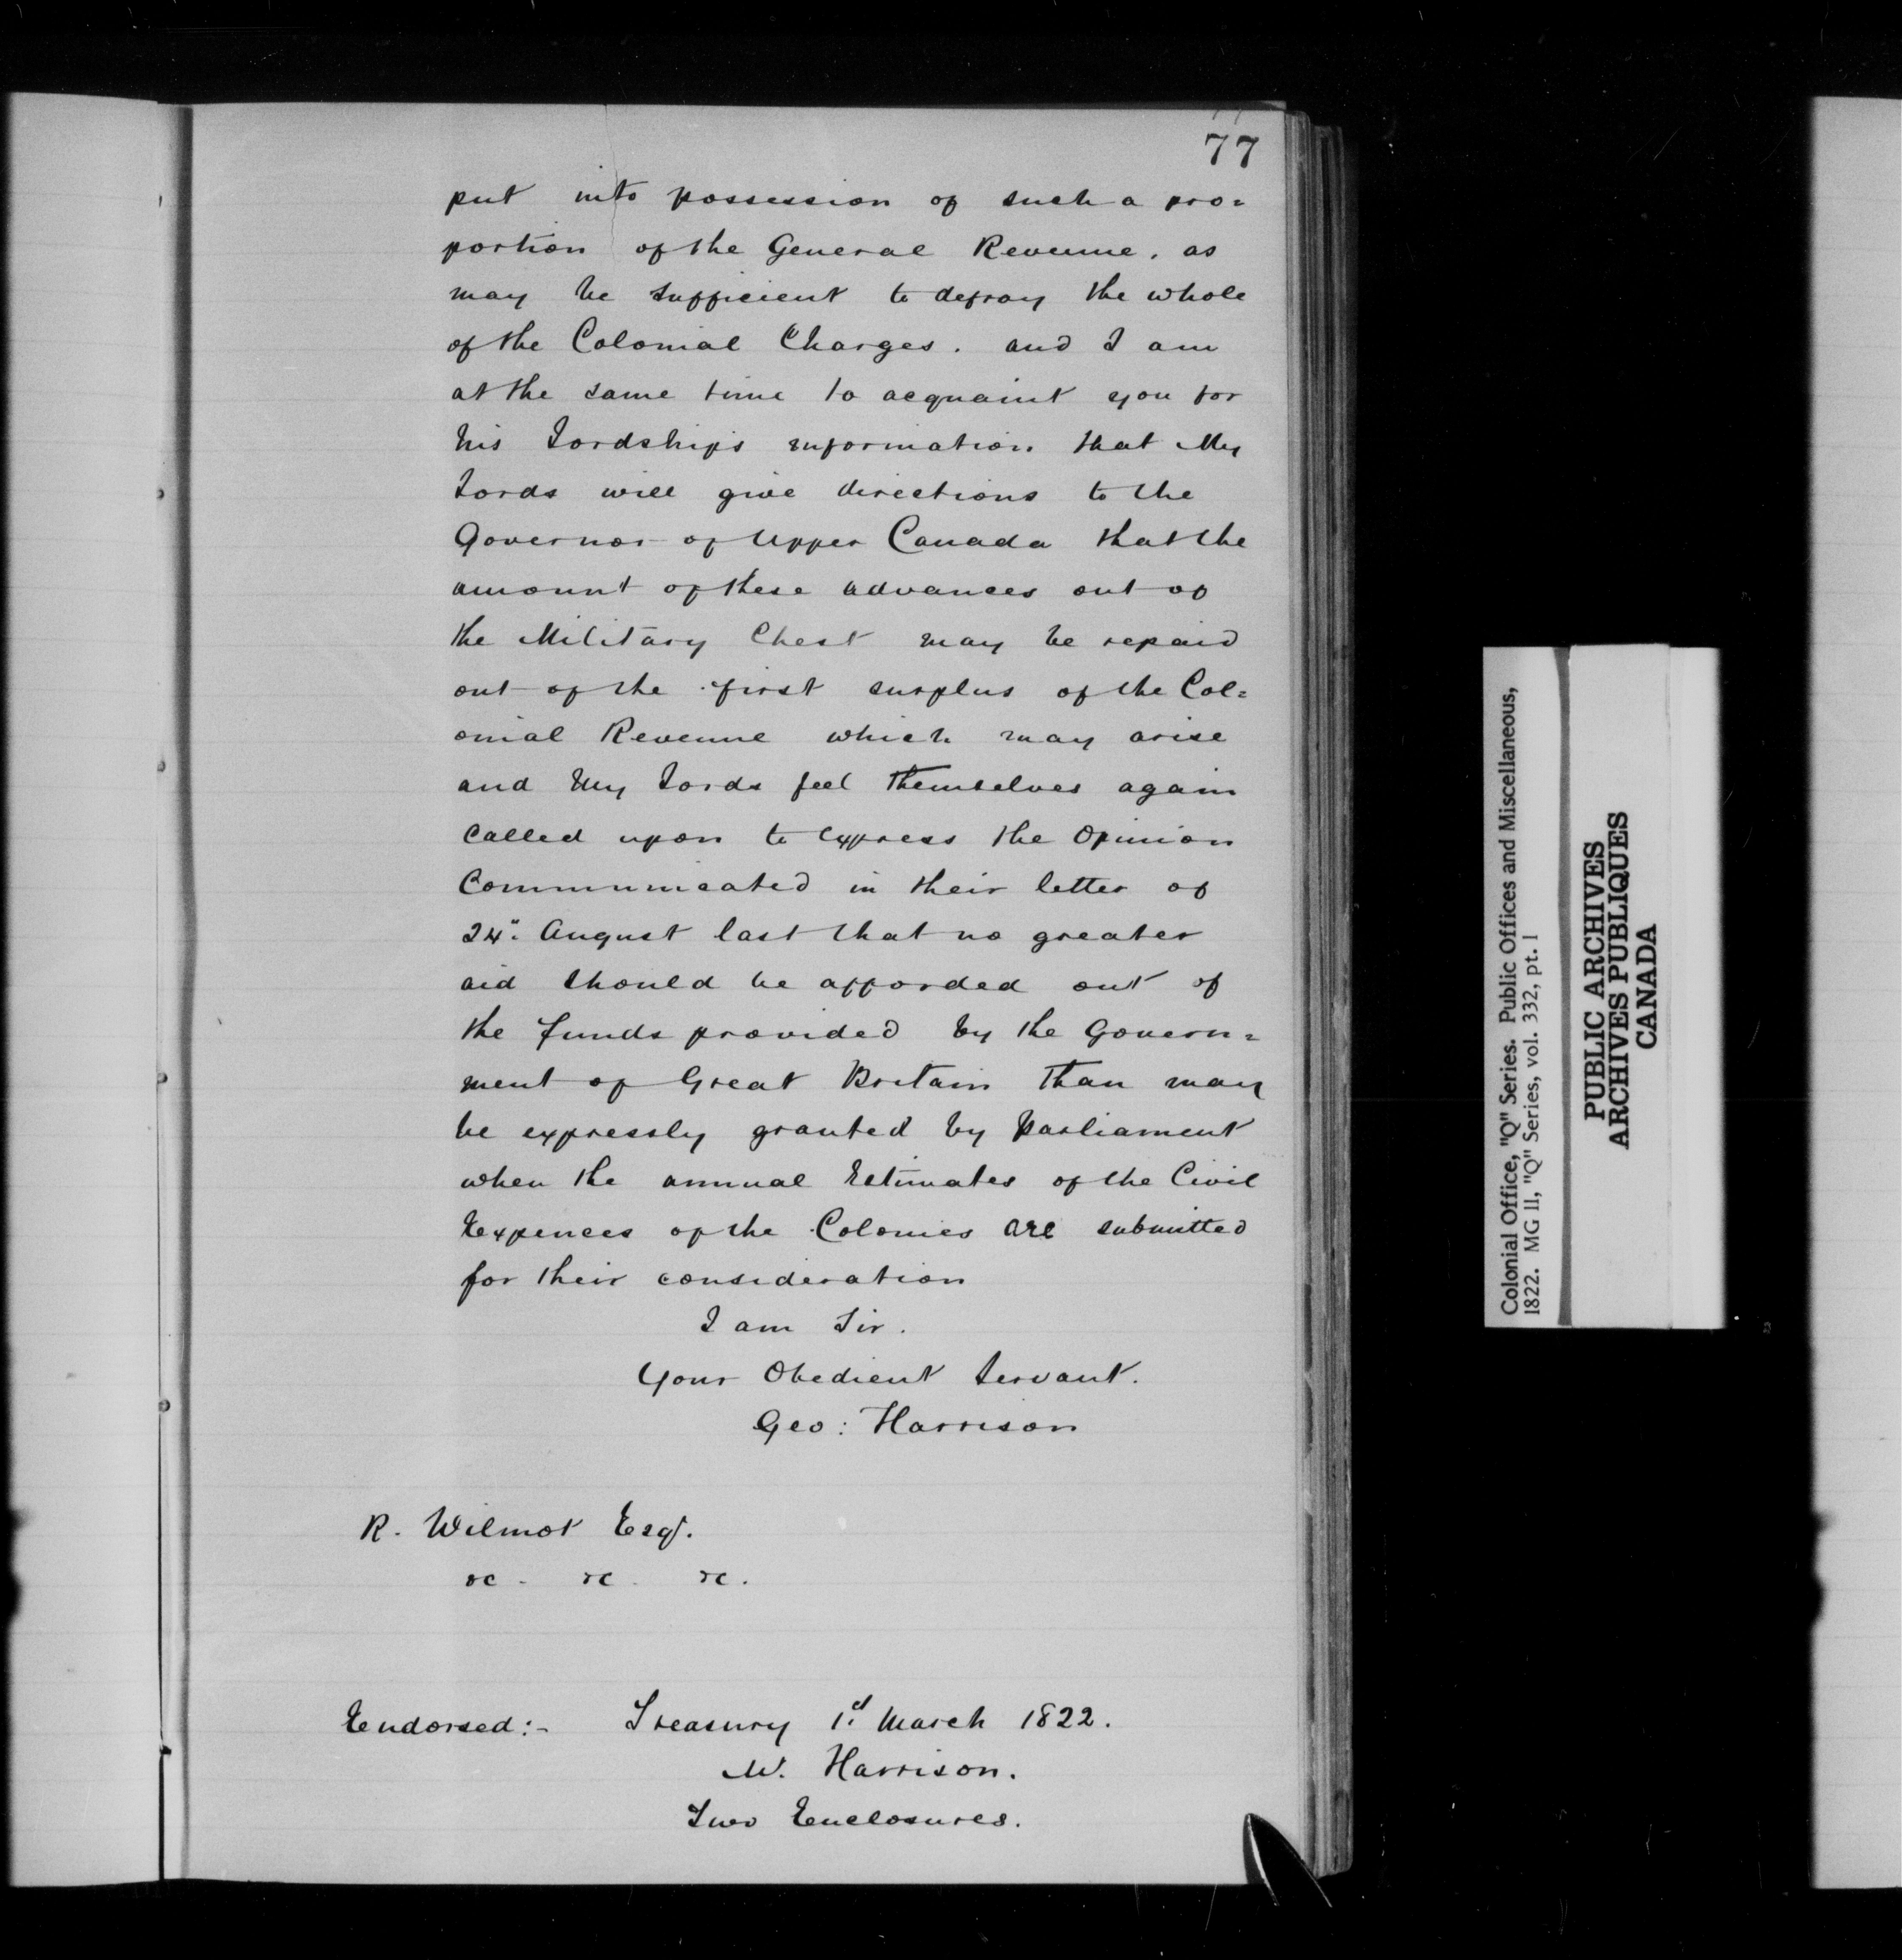 77
put into possession of such a pro=
portion of the General Revenue, as
may be sufficient to defray the whole
of the Colonial Charges. and I am
at the same time to acquaint you for
his Lordship's information that My
Lords will give directions to the
Governor of Upper Canada that the
amount of these advances out of
the Military Chest may be repaid
out of the first surplus of the Col=
onial Revenue which may arise
and My Lords feel themselves again
called upon to express the Opinion
Communicated in their letter of
24" August last that no greater
aid should be afforded out of
the funds provided by the Govern=
ment of Great Britain than may
be expressly granted by Parliament
when the annual Estimates of the Civil
Expences of the Colonies are submitted
for their consideration
I am Sir.
Your Obedient Servant.
Geo: Harrison
R. Wilmot Esqr.
&c. &c. &c.
Endorsed:- Treasury 1st March 1822.
Mr. Harrison.
Two Enclosures.
Colonial Office, "Q" Series. Public Offices and Miscellaneous,
1822. MG 11, "Q" Series, vol. 332, pt. 1
PUBLIC ARCHIVES
ARCHIVES PUBLIQUES
CANADA